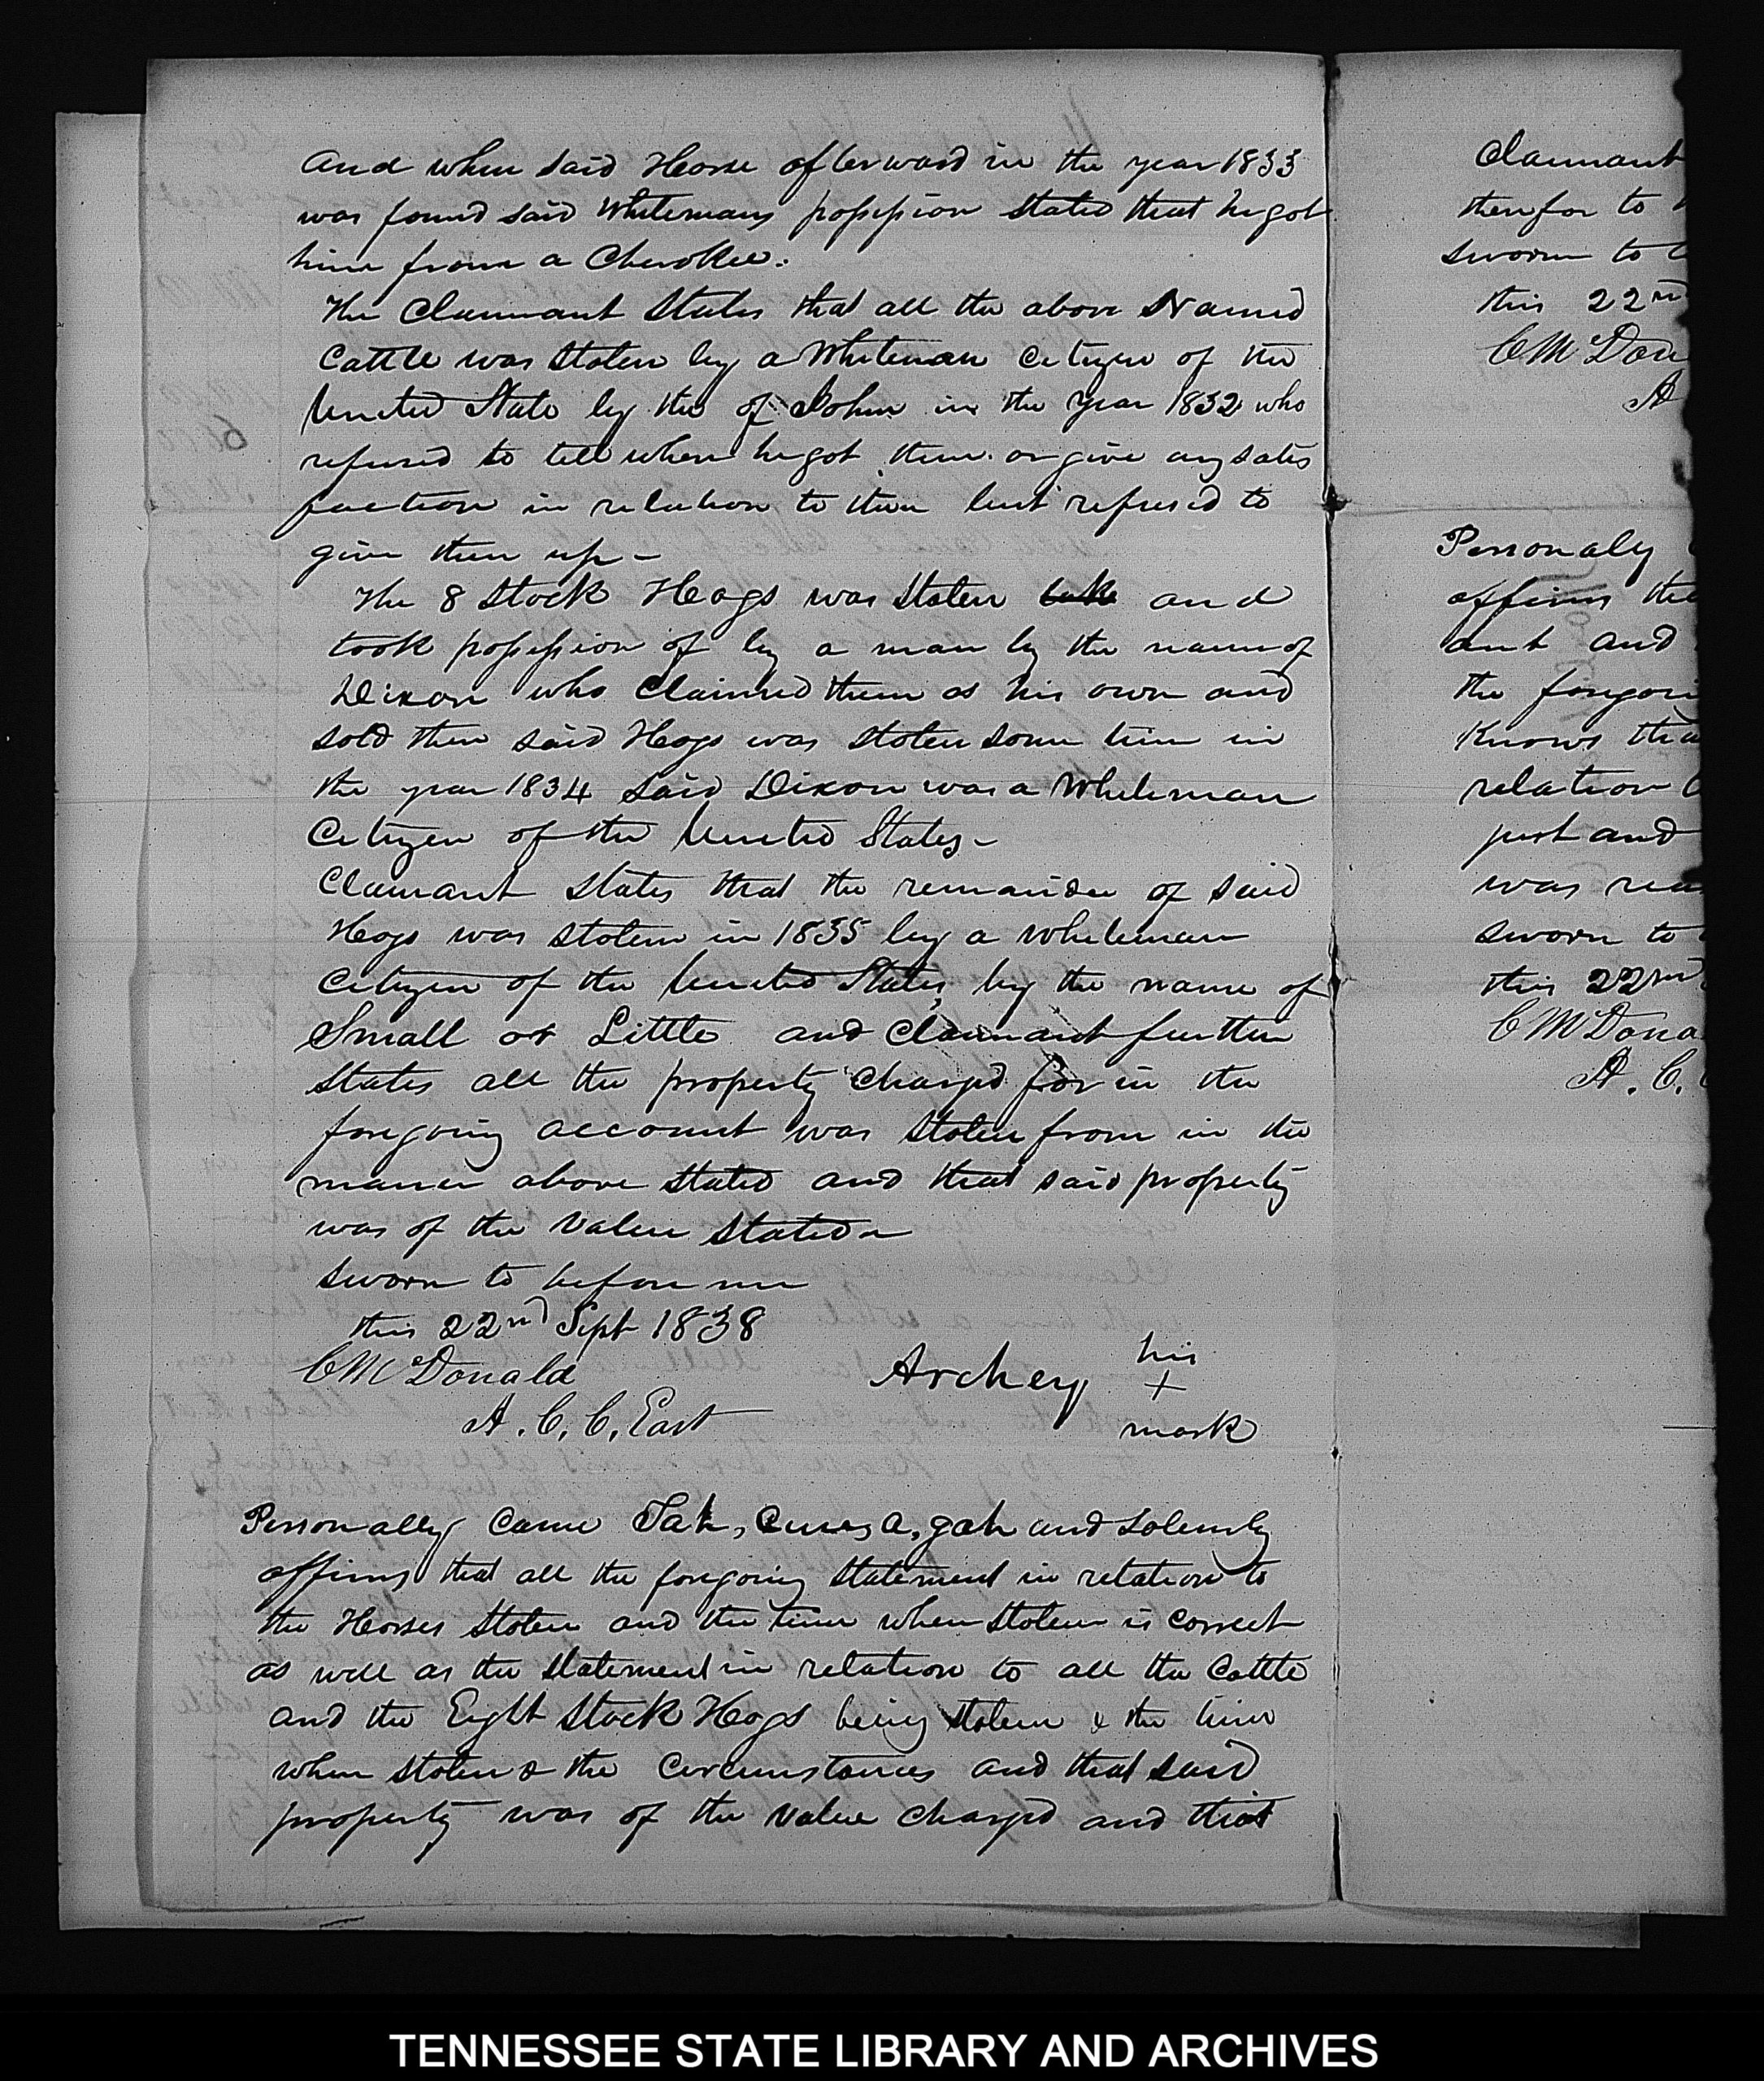 and when said Horse afterward in the year 1833
was found said Whitemans possession stated that he got
him from a Cherokee.
The Claimant States that all the above Named
Cattle was stolen by a Whiteman Citizen of the
United State by the of John in the year 1832 who
refused to tell where he got them or give any satis
faction in relation to them but refused to
give them up -
The 8 Stock Hogs was stolen and
took possession of by a man by the name of
Dixon who Claimed them as his own and
sold them said Hogs was stolen some time in
the year 1834 said Dixon was a Whiteman
Citizen of the United States -
Claimant states that the remainder of said
Hogs was stolen in 1835 by a whiteman
Citizen of the United States by the name of
Small or Little and Claimant further
States all the property Charged for in the
foregoing account was stolen from in the
maner above stated and that said property
was of the value stated
sworn to before me
this 22nd Sept 1838
C McDonald
A. C. C. East
Archey his
+
mark
Personally Came and Solemly
affirms that all the foregoing statement in relation to
the Horses Stolen and the time when stolen is correct
as well as the statement in relation to all the Cattle
and the Eight Stock Hogs being stolen & the time
when stolen & the Circumstances and that said
property was of the value charged and that
Claimant
therefor to
sworn to
this 22nd
C McDon
A
Personaly
affirms the
ant and
the foregoin
Knows tha
relation
just and
was
sworn to
this 22nd
C McDona
A. C.
TENNESSEE STATE LIBRARY AND ARCHIVES